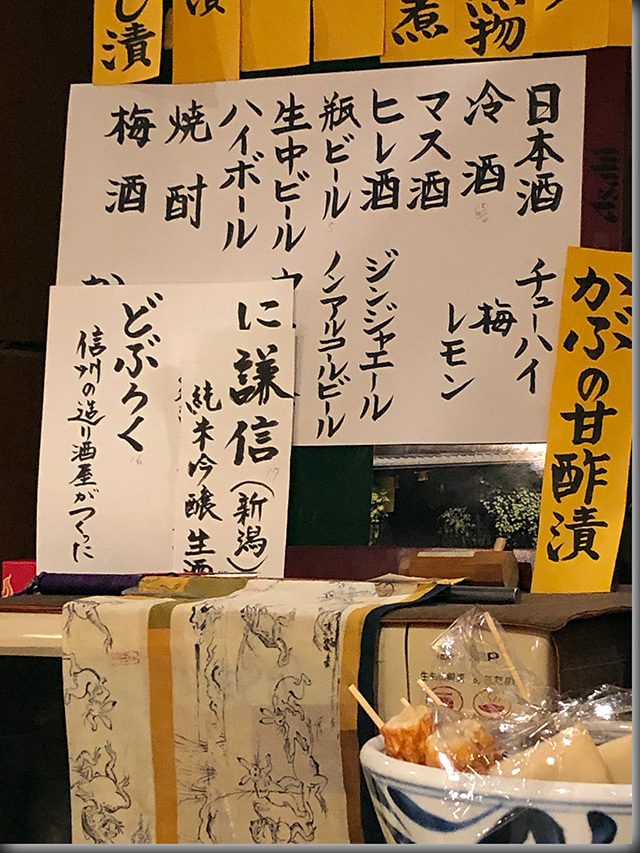 し漬
漬
煮
煮物
日本酒
冷酒
マス酒
ヒレ酒
瓶ビール
生中ビール
ハイボール
焼酎
梅酒
チューハイ
梅
レモン
ジンジャエール
ノンアルコールビール
ウ
か
かぶの甘酢漬
に
謙信(新潟)
純米吟醸生酒
どぶろく
信州の造り酒屋がつくった